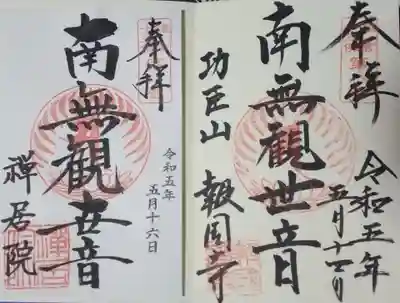 奉拝
令和五年
五月十六日
南無觀世音
功臣山 報国寺
奉拝
令和五年
五月十六日
南無觀世音
禅居院